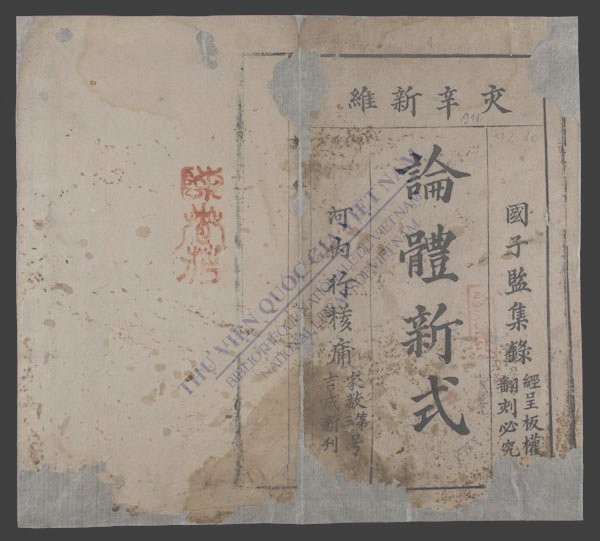 維新辛亥
國子監集錄
經呈板權
翻刻必究
論體新式
河內行庯
家数第号
吉成新刊
THƯ VIỆN QUỐC GIA VIỆT NAM
BIBLIOTHEQUE NATIONALE DU VIETNAM
NATIONAL LIBRARY OF VIETNAM